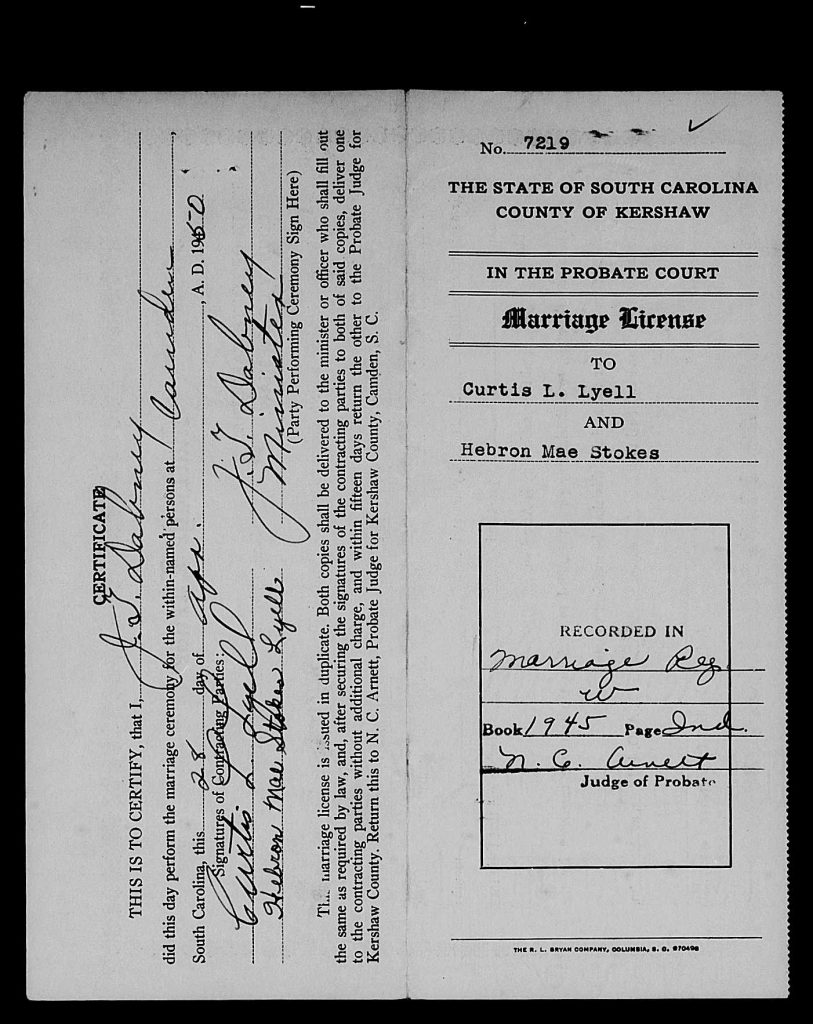 CERTIFICATE
THIS IS TO CERTIFY, that I, J. T. Dabney
did this day perform the marriage ceremony for the within-named persons at Camden,
South Carolina, this 28 day of Apr., A. D. 1950
Signatures of Contracting Parties:
Curtis L Lyell J. T. Dabney
Hebron Mae Stokes Lyell Minister
(Party Performing Ceremony Sign Here)
marriage license is issued in duplicate. Both copies shall be delivered to the minister or officer who shall fill out
the same as required by law, and, after securing the signatures of the contracting parties to both of said copies, deliver one
to the contracting parties without additional charge, and within fifteen days return the other to the Probate Judge for
Kershaw County. Return this to N. C. Arnett, Probate Judge for Kershaw County, Camden, S. C.
No. 7219
THE STATE OF SOUTH CAROLINA
COUNTY OF KERSHAW
IN THE PROBATE COURT
Marriage License
TO
Curtis L. Lyell
AND
Hebron Mae Stokes
RECORDED IN
Marriage Reg.
W
Book 1945 Page Ind.
N. C. Arnett
Judge of Probate
THE R. L. BRYAN COMPANY, COLUMBIA, S. C. 670498